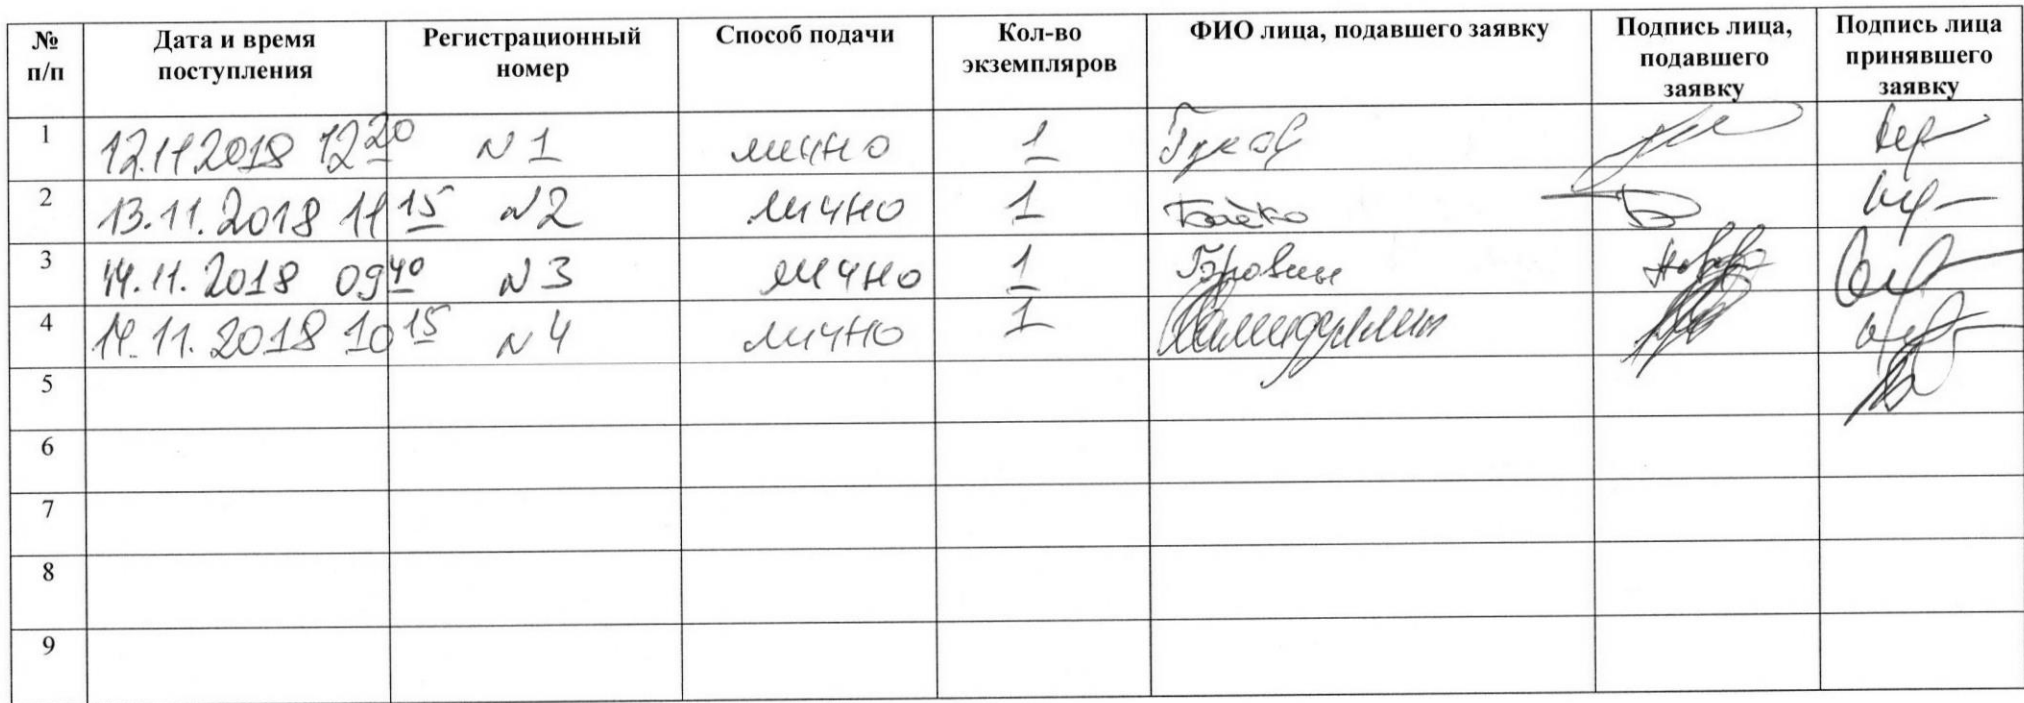 № п/п Дата и время поступления Регистрационный номер Способ подачи Кол-во экземпляров ФИО лица, подавшего заявку Подпись лица, подавшего заявку Подпись лица принявшего заявку
1 12.11.2018 12 20 N 1 лично 1
2 13.11.2018 11 15 N 2 лично 1 Бойко
3 14.11.2018 09 40 N 3 лично 1
4 14.11.2018 10 15 N 4 лично 1 Хамидуллин
5
6
7
8
9